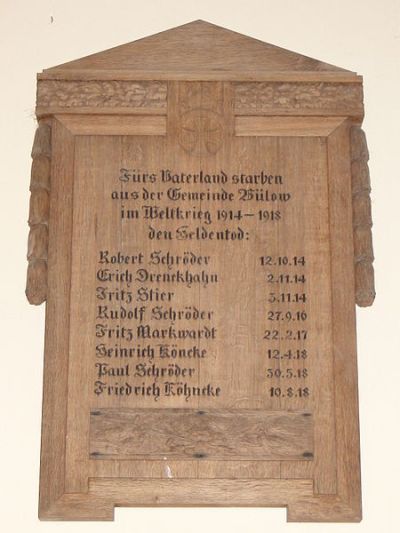 Fürs Vaterland starben
aus der Gemeinde Bülow
im Weltkrieg 1914-1918
den Heldentod:
Robert Schröder 12.10.14
Erich Drenckhahn 2.11.14
Fritz Stier 3.11.14
Rudolf Schröder 27.9.16
Fritz Markwardt 22.2.17
Heinrich Köncke 12.4.18
Paul Schröder 30.5.18
Friedrich Köhncke 10.8.18